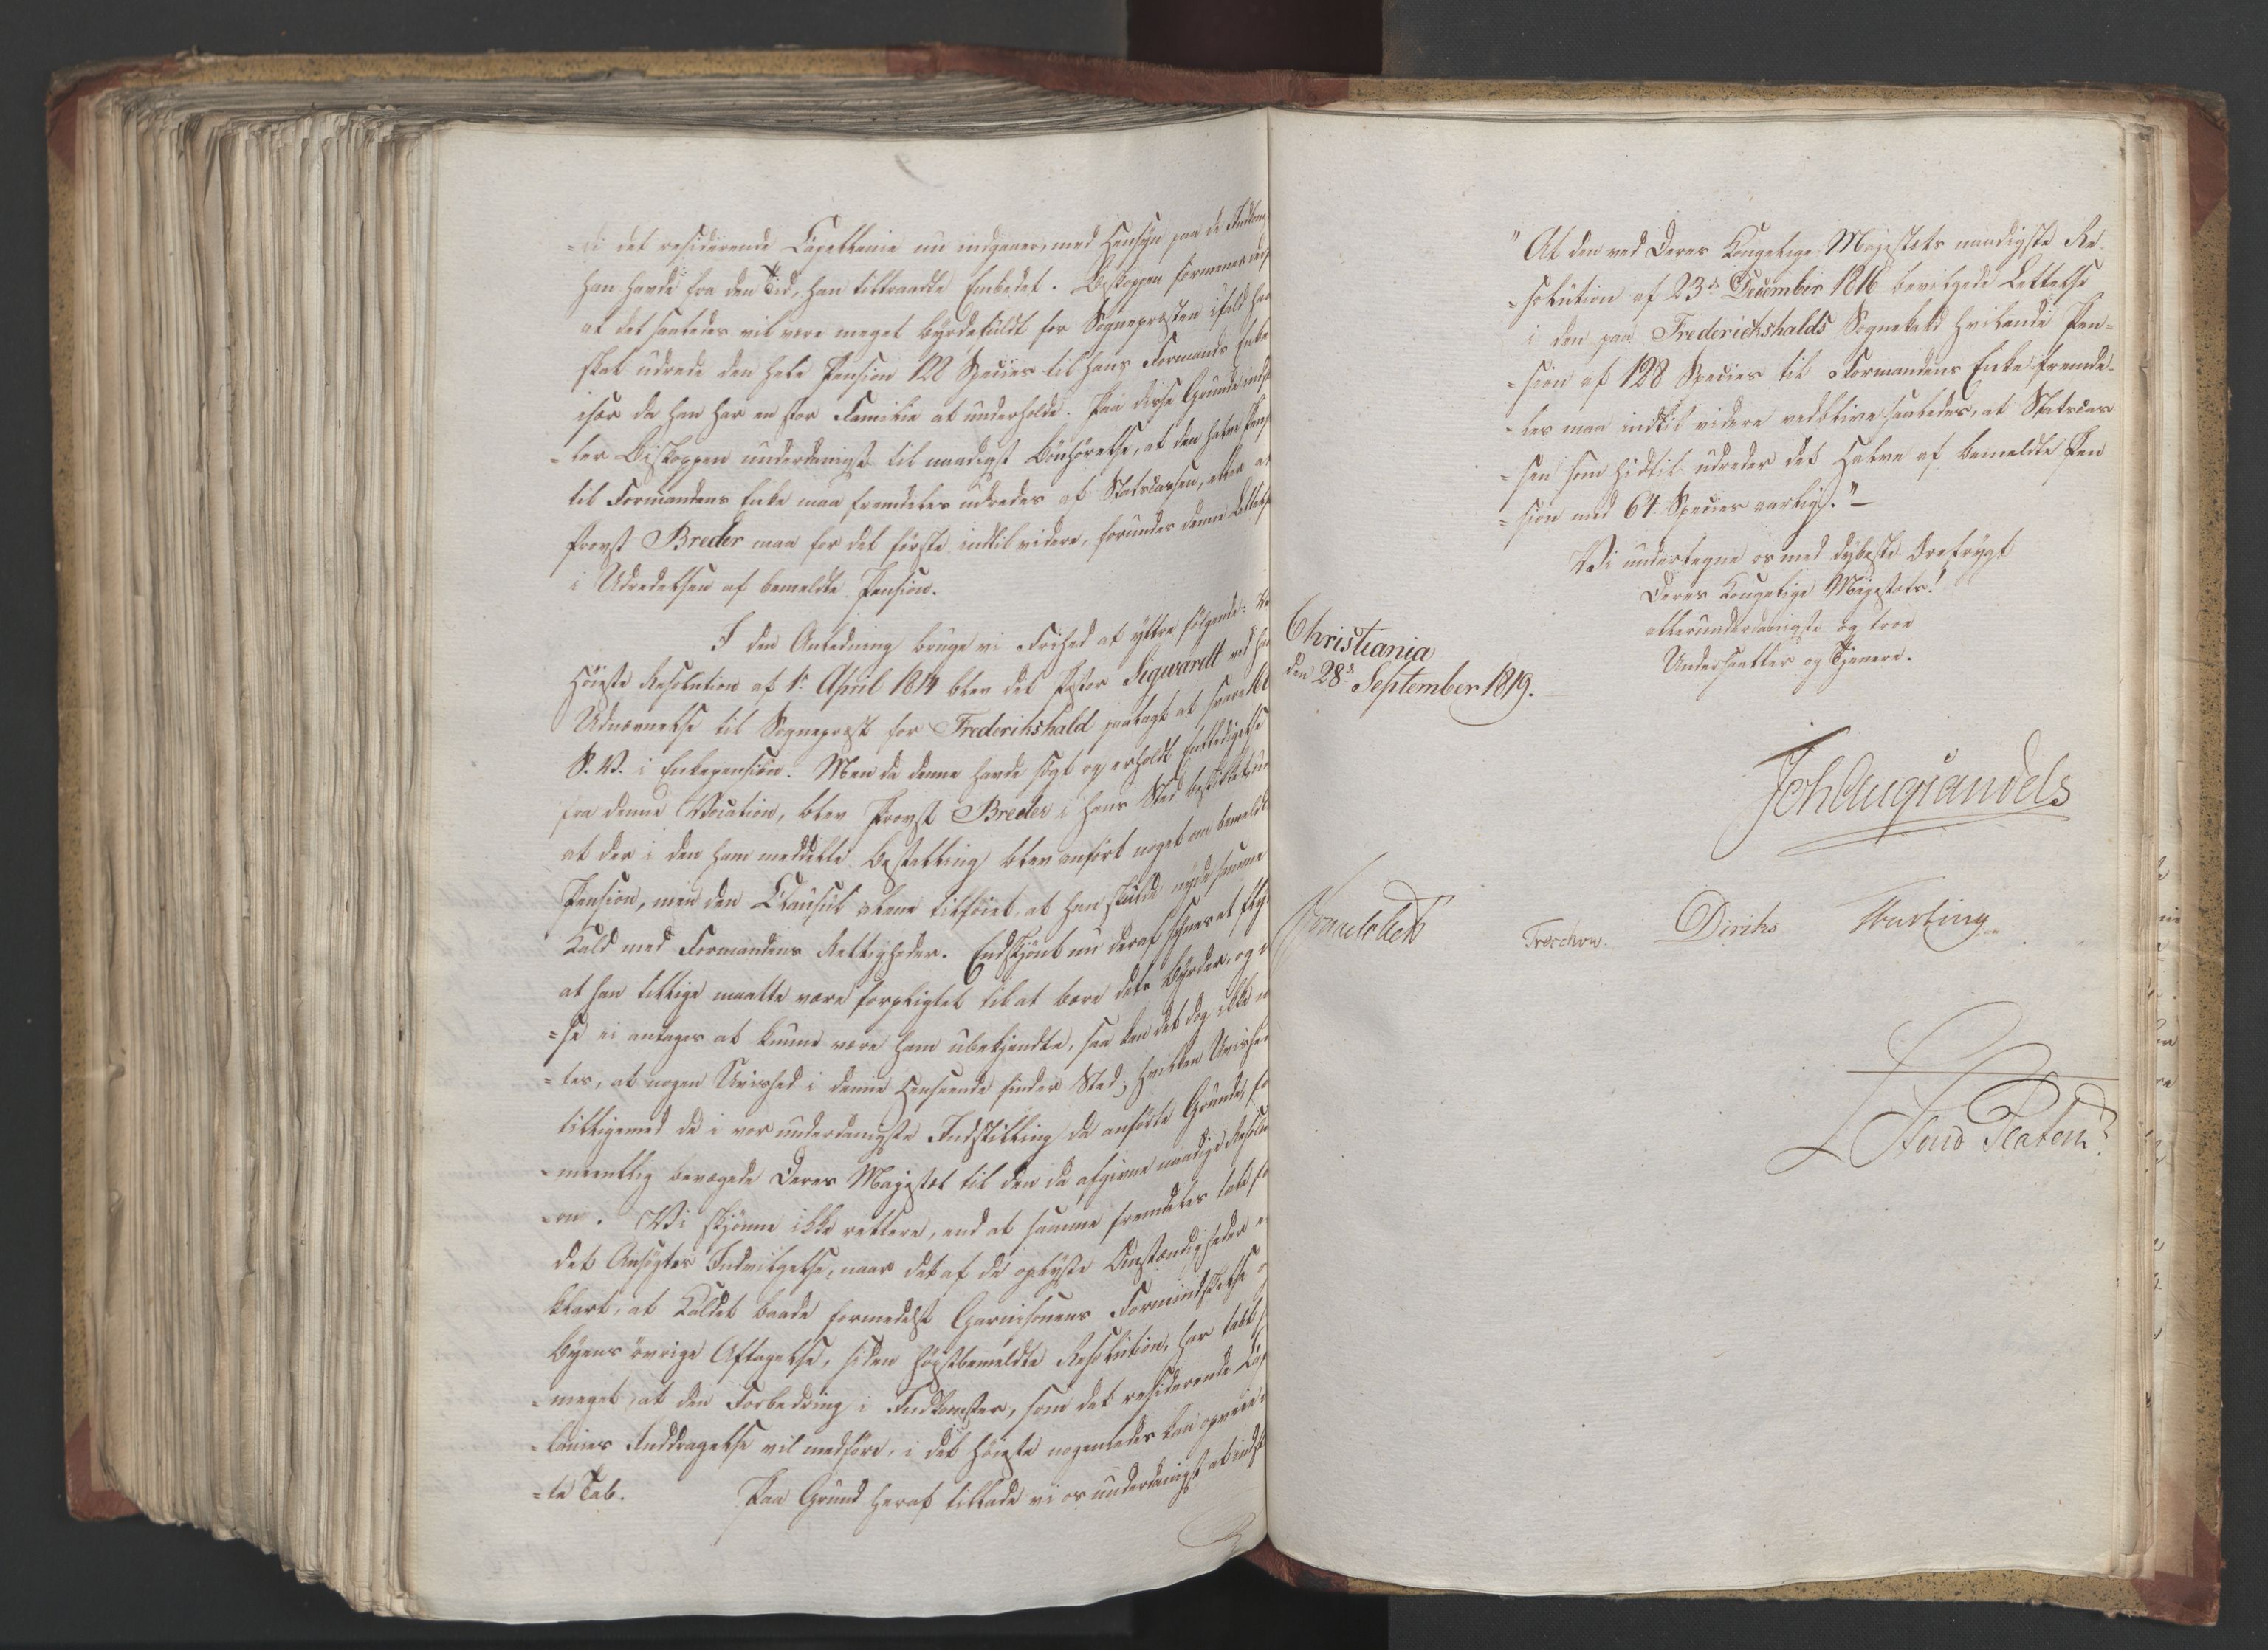 =di det residerende Capellanie nu indgaaer, med Hensyn paa de
han havde fra den Tid, han tiltraadte Embedet. Biskoppen formener
at det saaledes vil være meget byrdefuldt for Sognepræsten ifald han
skal udrede den hele Pension 128 Species til hans Formands Enke
især da han har en stor Familie at underholde. Paa disse Grunde indstil
=ler Biskoppen underdanigst til naadigst Bönhörelse, at den halve Pens
til Formandens Enke maa fremdeles udredes af Statscassen, eller at
Provst Breder maa for det förste indtil videre, forundes denne Lettelse
i Udredelsen af bemeldte Pension.
I den Anledning bruge vi Frihed at yttre fölgende: Ve
Höieste Resolution af 1e April 1814 blev det Pastor Sigwardt ved han
Udnævnelse til Sognepræst for Frederikshald paalagt at svare
S. V. i Enkepension. Men da denne havde sögt og erholdt Entledigelse
fra denne Vocation, blev Provst Breder i hans Sted beskikket, ud
at der i den ham meddelte Bestalling blev anfört noget om bemeldte
Pension, men den Clausul alene tilföiet, at han skulde nyde samme
Kald med Formandens Rettigheder. Endskjönt nu deraf synes at flyde
at han tillige maatte være forpligtet til at bære dets Byrder, og d
=se ei antages at kunne være ham ubekjendte, saa kan det dog ikke n
=tes, at nogen Uvished i denne Henseende finder Sted; hvilken Uvished
tilligemed de i vor underdanigste Indstilling da anförte Grunde, for
=mentlig bevægede Deres Majestæt til den da afgivne naadige Resoluti
=on. Vi skjönne ikke rettere, end at samme fremdeles tale for
det Ansögtes Indvilgelse, naar det af de oplyste Omstændigheder er
klart, at Kaldet baade formedelst Garnisonens Formindskelse og
Byens övrige Aftagelse, siden höistbemeldte Resolution, har tabt s
=meget, at den Forbedring i Indkomster, som det residerende Cap
=lanies Inddragelse vil medföre, i det höieste nogenledes kan opveie
=te Tab. Paa Grund heraf tillade vi os underdanigst at indst
"At den ved Deres Kongelige Majestæts naadigste Re=
=solution af 23de December 1816 bevilgede Lettelse
i den paa Frederickshalds Sognekald hvilende Pen=
=sion af 128 Species til Formandens Enke fremde=
=les maa indtil videre vedblive saaledes, at Statscas
=sen som hidtil udreder det Halve af bemeldte Pen
=sion med 64 Species aarlig."—
Vi undertegne os med dybeste Ærefrygt
Deres Kongelige Majestæts!
allerunderdanigste og troe
Undersaatter og Tjenere.
Christiania
den 28de September 1819.
Joh Aug Sandels
Treschow.
Diriks